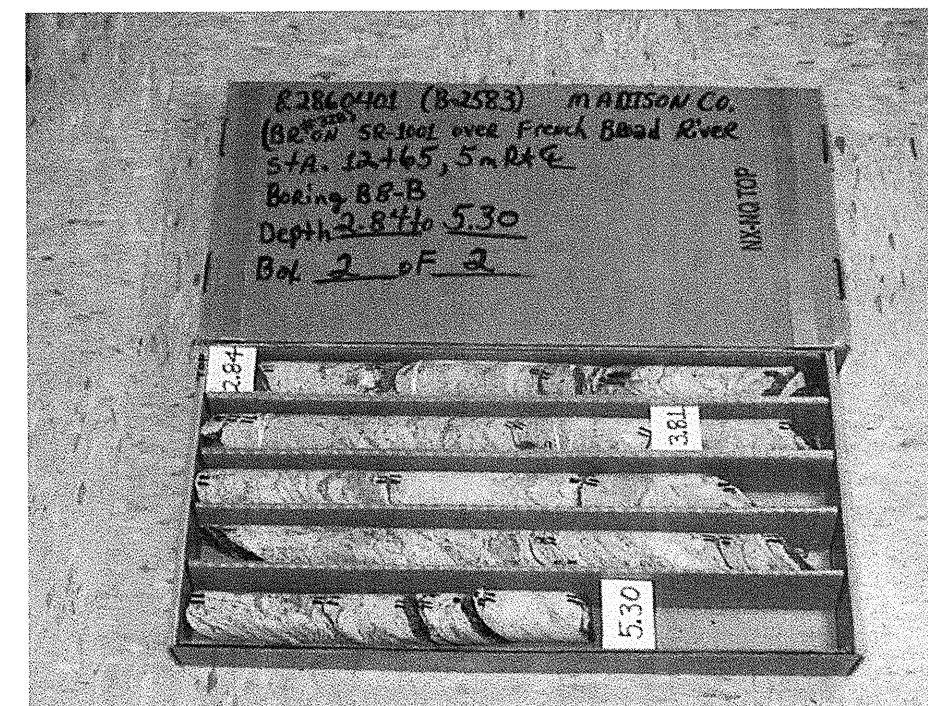 8.2860401 (B-2583) MADISON Co.
(BR ON SR-1001 over French Broad River
STA. 12+65, 5m Rt ℄
Boring B8-B
Depth 2.84 to 5.30
Box 2 of 2
NX-NQ TOP
TOP
2.84
3.81
5.30